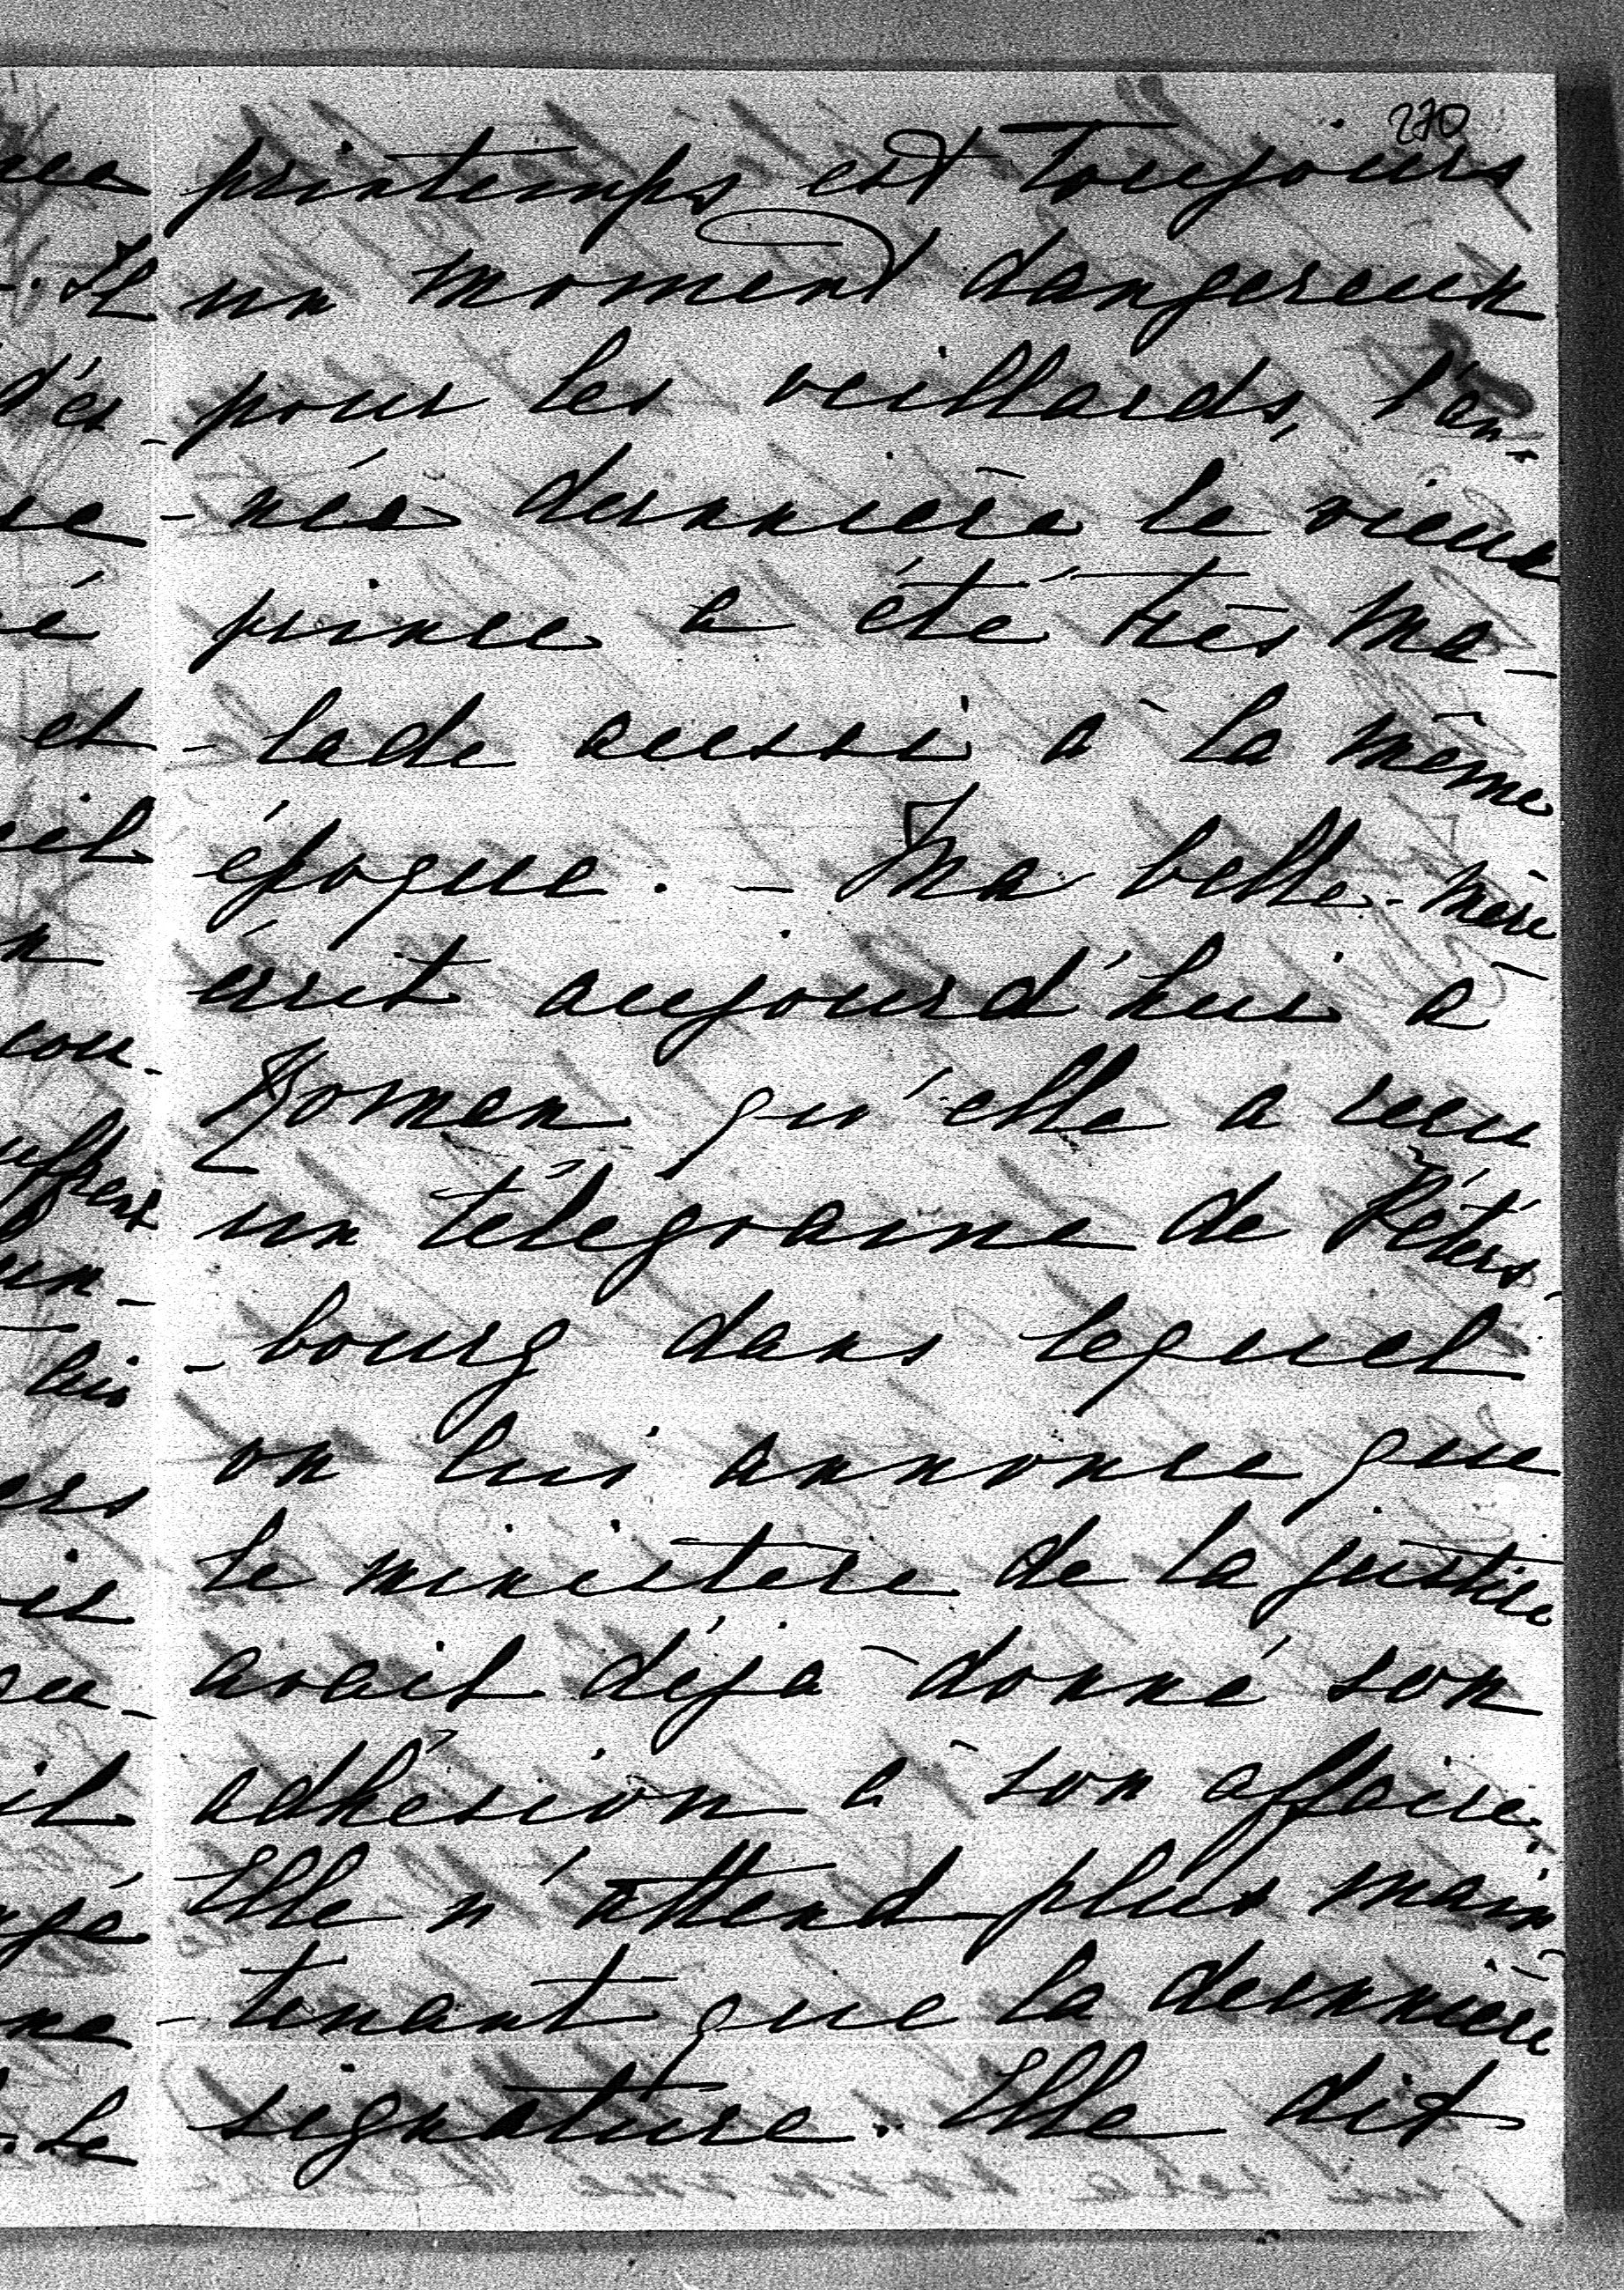 270
printemps est toujours
un moment dangereux
pour les veillards, l'an-
-née dernnière le vieux
prince a été très ma-
-lade aussi à la même
époque. – Ma belle-mère
écrit aujourd'hui à
Roman qu'elle a reçu
un télégramme de Péters-
-bourg dans lequel
on lui annonce que
le ministère de la justice
avait déjà donné son
adhésion à son affaire.
Elle n'attend plus main-
-tenant que la dernnière
signature. Elle dit